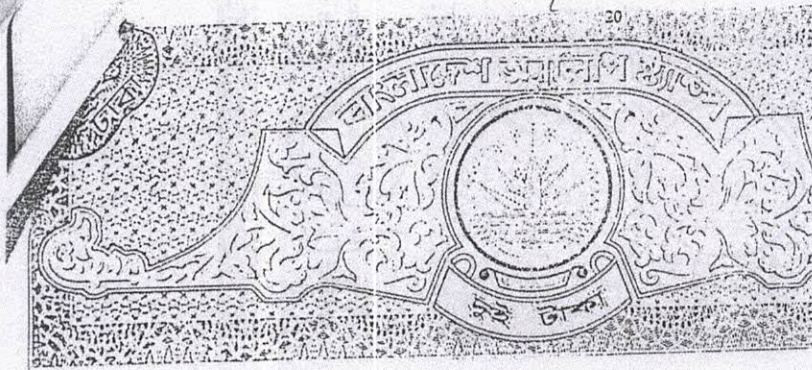 20
বাংলাদেশ অনুলিপি স্ট্যাম্প
দুই টাকা